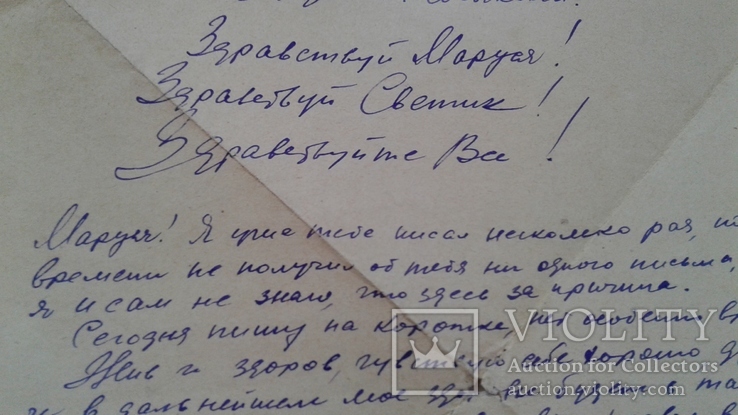 Здравствуй Маруся!
Здравствуй Светик!
Здравствуйте Все!
Маруся! Я уже тебе писал несколько раз, но
времени не получил от тебя ни одного письма,
я и сам не знаю, что здесь за причина.
Сегодня пишу на коротке, нет особенно в
Жив и здоров, чувствую себе хорошо д
в дальнейшем мое будет в та
VIOLITY
Auction for Collectors
auction.violity.com